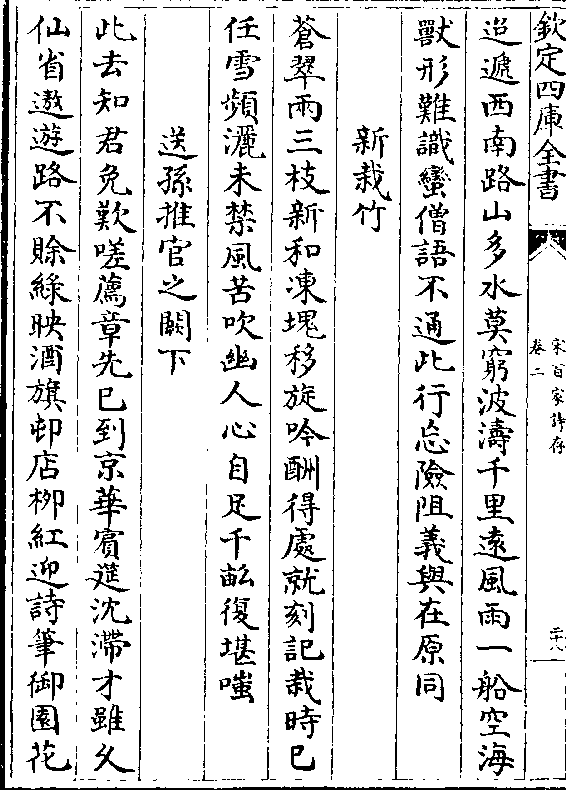 欽定四庫全書
宋百家詩存
卷二
二十八
迢遞西南路山多水莫窮波濤千里遠風雨一船空海
獸形難識蠻僧語不通此行忘險阻義與在原同
新栽竹
蒼翠兩三枝新和凍塊移旋吟酬得處就刻記栽時已
任雪頻灑未禁風苦吹幽人心自足千畝復堪嗤
送孫推官之闕下
此去知君免歎嗟薦章先已到京華賓筵沈滯才雖久
仙省遨遊路不賒綠映酒旗邨店栁紅迎詩筆御園花